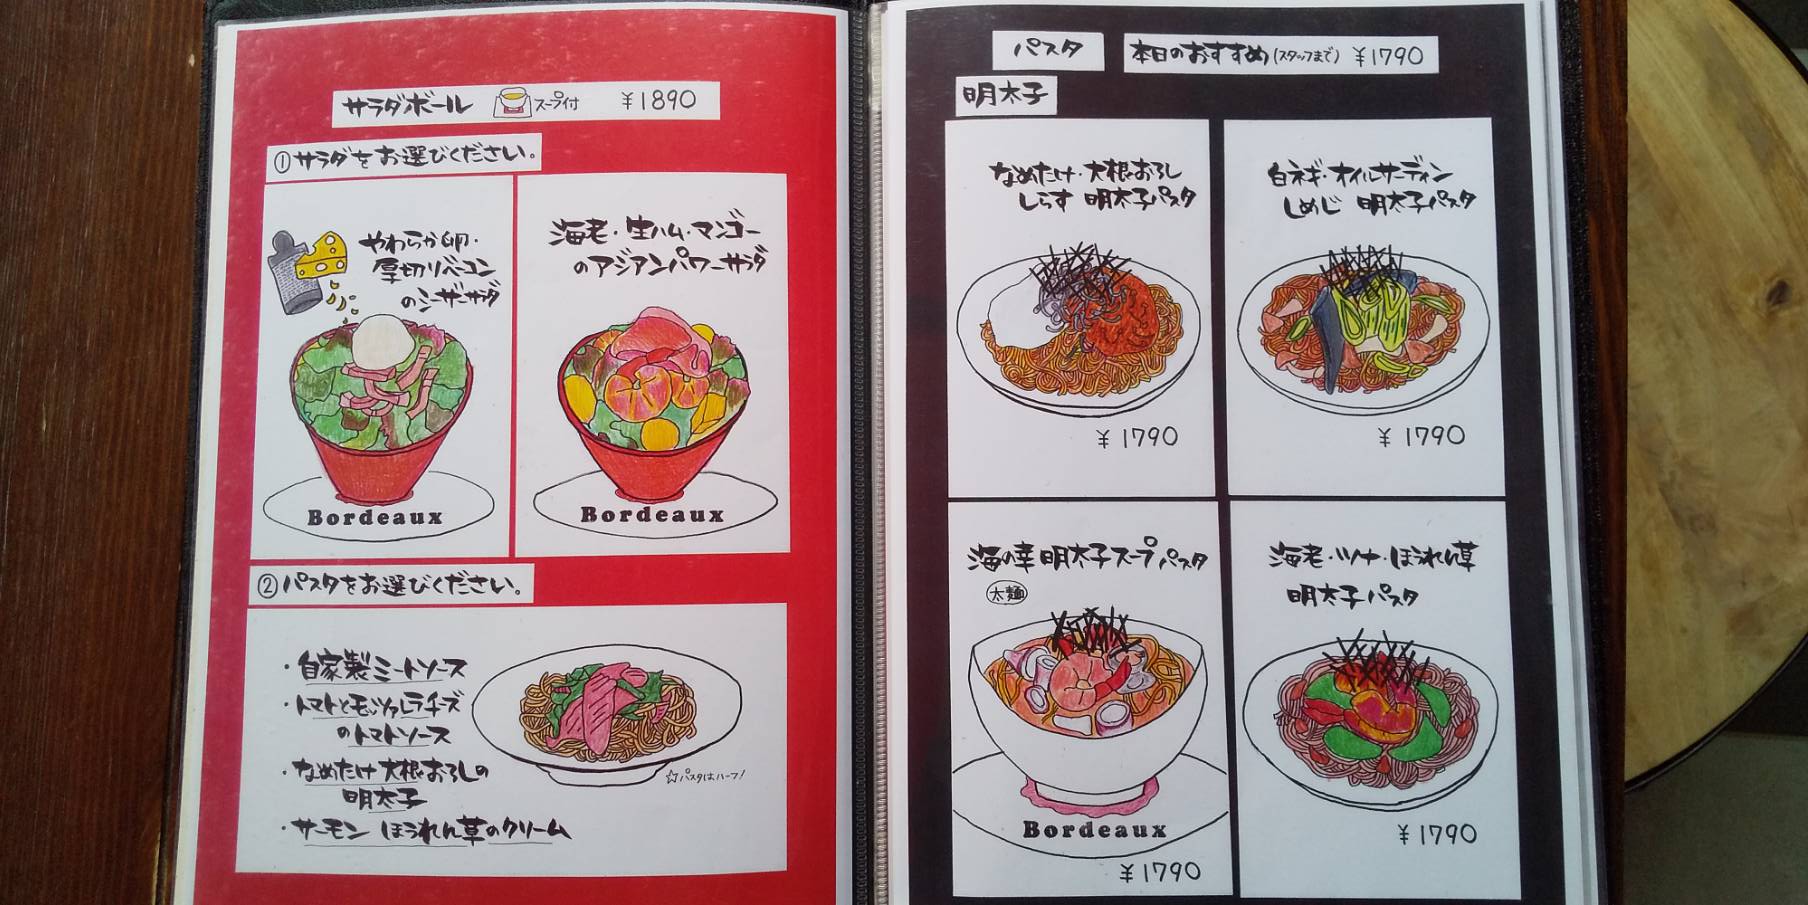 サラダボール スープ付 ¥1890
①サラダをお選びください。
やわらか卵・
厚切りベーコン
のシーザーサラダ
海老・生ハム・マンゴー
のアジアンパワーサラダ
Bordeaux
Bordeaux
②パスタをお選びください。
・自家製ミートソース
・トマトとモッツァレラチーズ
のトマトソース
・なめたけ大根おろしの
明太子
・サーモン ほうれん草のクリーム
☆パスタはハーフ!
パスタ 本日のおすすめ(スタッフまで) ¥1790
明太子
なめたけ・大根おろし
しらす 明太子パスタ
¥1790
白ネギ・オイルサーディン
しめじ 明太子パスタ
¥1790
海の幸 明太子スープパスタ
太麺
Bordeaux
¥1790
海老・ツナ・ほうれん草
明太子パスタ
¥1790